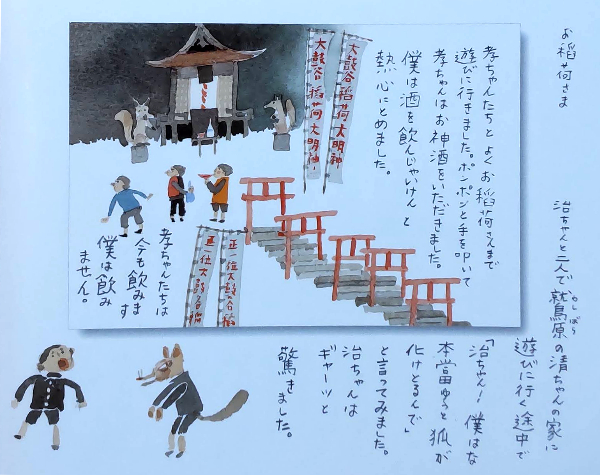 お稲荷さま
孝ちゃんたちとよくお稲荷さんまで
遊びに行きました。ポンポンと手を叩いて
孝ちゃんはお神酒をいただきました。
僕は酒を飲んじゃいけんと
熱心にとめました。
大鼓谷稲荷大明神
大鼓谷稲荷大明神
孝ちゃんたちは
今も飲みます
僕は飲み
ません。
正一位大鼓谷稲
正一位大鼓谷稲
治ちゃんと二人で鷲原の清ちゃんの家に
わしばら
遊びに行く途中で
「治ちゃん!僕はな
本當ゆうと狐が
化けとるんで」
と言ってみました。
治ちゃんは
ギャーッと
驚きました。